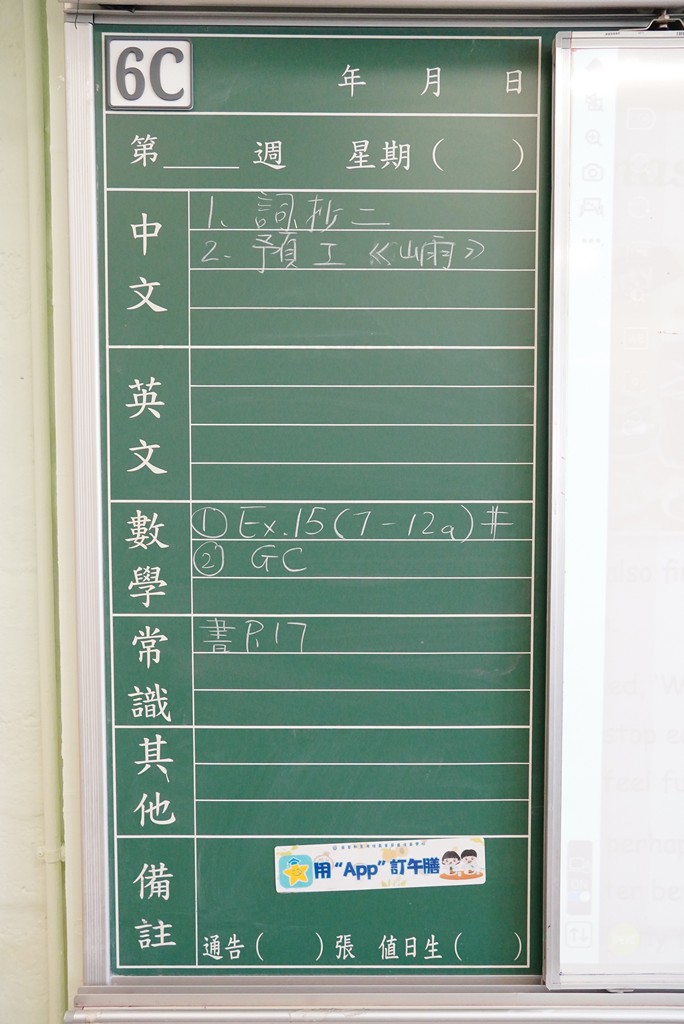 6C
年 月 日
第____週 星期( )
中文
1. 詞抄二
2. 預工《山雨》
英文
數學
① Ex.15(7-12a)#
② GC
常識
書P.17
其他
備註
用“App”訂午膳
通告( )張 值日生( )